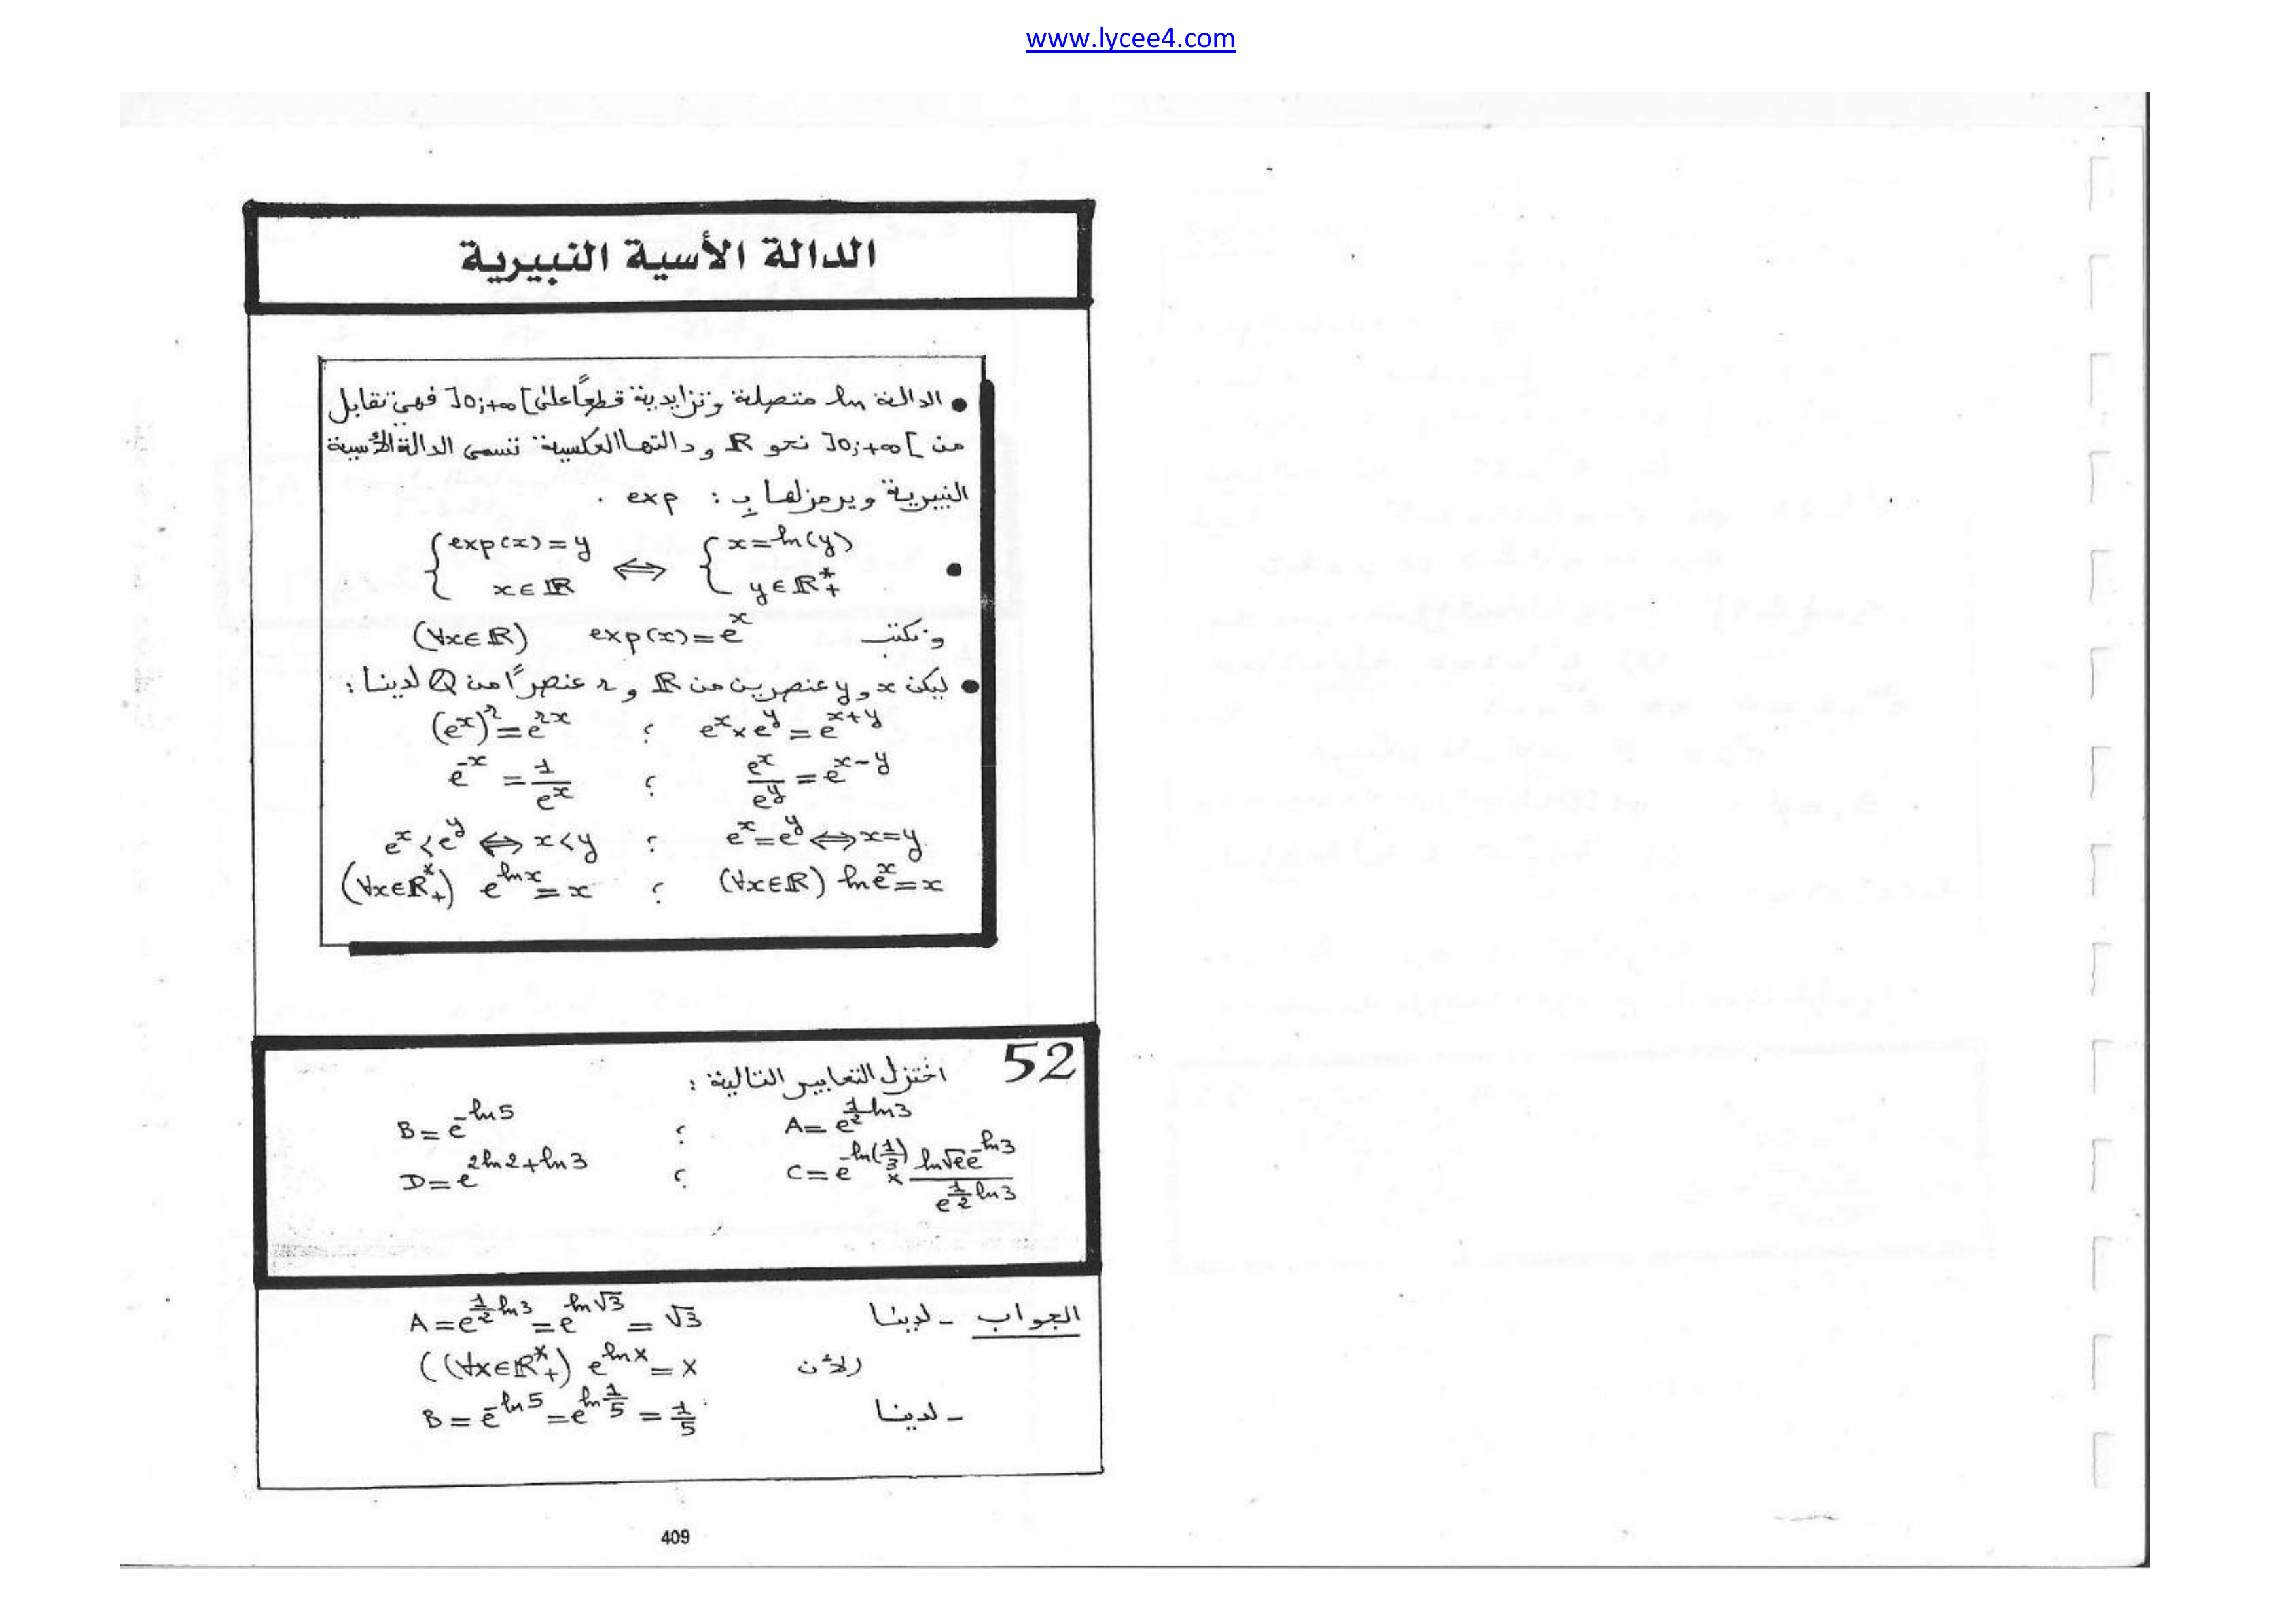 www.lycee4.com
الدالة الأسية النبيرية
• الدالة ln متصلة وتزايدية قطعًا على ]0;+∞[ فهي تقابل
من ]0;+∞[ نحو ℝ ودالتها العكسية تسمى الدالة الأسية
النبيرية ويرمز لها بِ : exp .
• {exp(x)=y x∈ℝ ⇔ {x=ln(y) y∈ℝ*₊
ونكتب exp(x)=eˣ (∀x∈ℝ)
• ليكن x و y عنصرين من ℝ و r عنصرًا من ℚ لدينا :
eˣ×eʸ=eˣ⁺ʸ ; (eˣ)ʳ=eʳˣ
eˣ/eʸ=eˣ⁻ʸ ; e⁻ˣ=1/eˣ
eˣ=eʸ⇔x=y ; eˣ<eʸ⇔x<y
(∀x∈ℝ) ln eˣ=x ; (∀x∈ℝ*₊) e^(ln x)=x
52 اختزل التعابير التالية :
A=e^(1/2 ln3) ; B=e^(-ln5)
C=e^(-ln(1/3)) × (ln√e e^(-ln3))/(e^(1/2 ln3)) ; D=e^(2ln2+ln3)
الجواب - لدينا A=e^(1/2 ln3)=e^(ln√3)=√3
لأن ((∀x∈ℝ*₊) e^(ln x)=x
- لدينا B=e^(-ln5)=e^(ln 1/5)=1/5
409